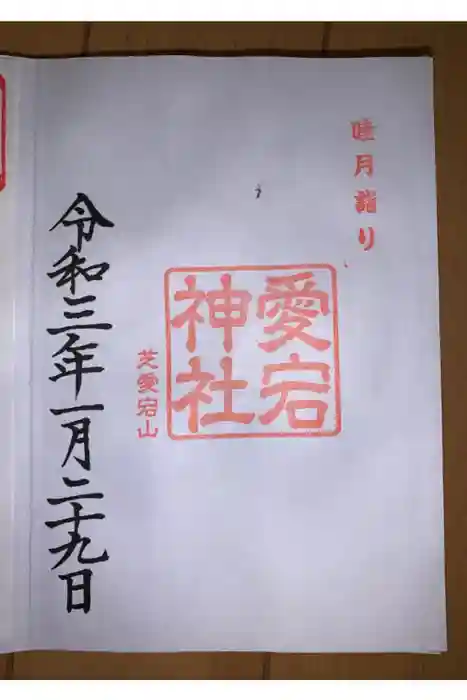 睦月詣り
愛宕
神社
芝愛宕山
令和三年一月二十九日